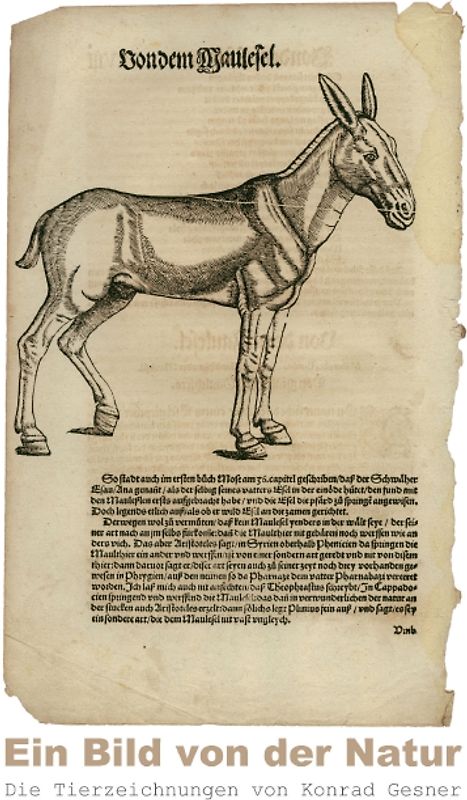 Von dem Maulesel.
So stadt auch im ersten bůch Mose am 36. capitel geschriben/ daß der Schwäher
Esau/ Ana genañt/ als der selbig seines vatters Esel in der einöde hütet/ den fund mit
den Mauleßlen ersts aufgebracht habe/ vnd die Esel die pfärd zů springẽ angewisen.
Doch legends etlich auß/ als ob er wild Esel an die zamen gerichtet.
Derwegen wol zů vermůten/ daß kein Maulesel yenders in der wält seye/ der sei-
ner art nach an jm selbs fürkom̃e: daß die Maulthier mit gebären noch werffen wie an-
ders vich. Das aber Aristoteles sagt/ in Syrien oberhalb Phenicien da springen die
Maulthier ein ander vnd werffen/ ist von einer sondern art geredt vnd nit von disem
thier: dann daruor sagt er/ diser art seyen auch zů seiner zeyt noch drey vorhanden ge-
wesen in Phrygien/ auß den neünen so da Pharnaze dem vatter Pharnabazi vereeret
worden. Ich laß mich auch nit anfechten/ daß Theophrastus schreybt/ In Cappado-
cien springend vnd werffend die Maulesel: das dañ in verwunderlichen der natur an
der stucken auch Aristoteles erzelt: dann sölichs legt Plinius fein auß/ vnd sagt/ es sey
ein sondere art/ die dem Maulesel nit vast vngleych.
Vnnb
Ein Bild von der Natur
Die Tierzeichnungen von Konrad Gesner